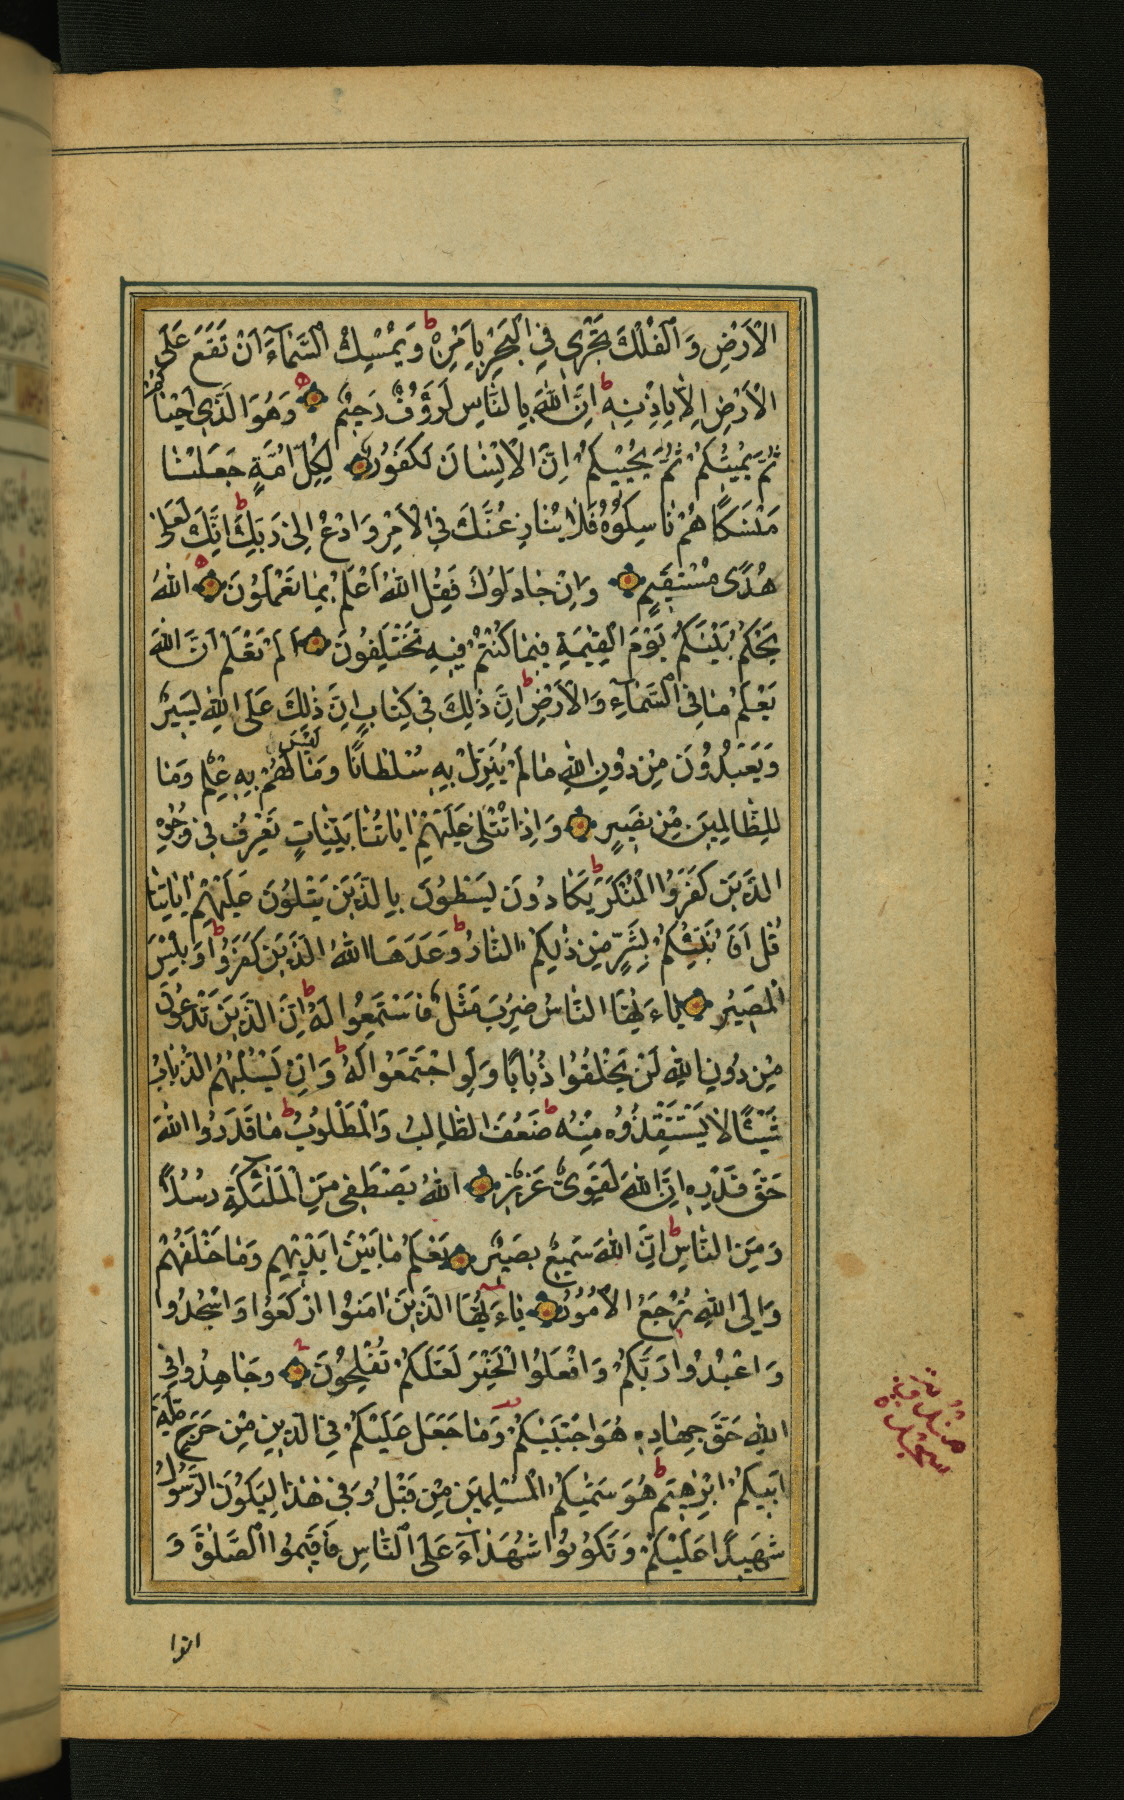 الْاَرْضِ وَالْفُلْكَ تَجْرٖى فِى الْبَحْرِ بِاَمْرِهٖ ط وَيُمْسِكُ السَّمَآءَ اَنْ تَقَعَ عَلَى
الْاَرْضِ اِلَّا بِاِذْنِهٖ ط اِنَّ اللّٰهَ بِالنَّاسِ لَرَؤُفٌ رَحٖيمٌ وَهُوَ الَّذٖى اَحْيَاكُمْ
ثُمَّ يُمٖيتُكُمْ ثُمَّ يُحْيٖيكُمْ اِنَّ الْاِنْسَانَ لَكَفُورٌ لِكُلِّ اُمَّةٍ جَعَلْنَا
مَنْسَكًا هُمْ نَاسِكُوهُ فَلَا يُنَازِعُنَّكَ فِى الْاَمْرِ وَادْعُ اِلٰى رَبِّكَ ط اِنَّكَ لَعَلٰى
هُدًى مُسْتَقٖيمٍ وَاِنْ جَادَلُوكَ فَقُلِ اللّٰهُ اَعْلَمُ بِمَا تَعْمَلُونَ اَللّٰهُ
يَحْكُمُ بَيْنَكُمْ يَوْمَ الْقِيٰمَةِ فٖيمَا كُنْتُمْ فٖيهِ تَخْتَلِفُونَ اَلَمْ تَعْلَمْ اَنَّ اللّٰهَ
يَعْلَمُ مَا فِى السَّمَآءِ وَالْاَرْضِ ط اِنَّ ذٰلِكَ فٖى كِتَابٍ اِنَّ ذٰلِكَ عَلَى اللّٰهِ يَسٖيرٌ
وَيَعْبُدُونَ مِنْ دُونِ اللّٰهِ مَا لَمْ يُنَزِّلْ بِهٖ سُلْطَانًا وَمَا لَيْسَ لَهُمْ بِهٖ عِلْمٌ وَمَا
لِلظَّالِمٖينَ مِنْ نَصٖيرٍ وَاِذَا تُتْلٰى عَلَيْهِمْ اٰيَاتُنَا بَيِّنَاتٍ تَعْرِفُ فٖى وُجُوهِ
الَّذٖينَ كَفَرُوا الْمُنْكَرَ ط يَكَادُونَ يَسْطُونَ بِالَّذٖينَ يَتْلُونَ عَلَيْهِمْ اٰيَاتِنَا
قُلْ اَفَاُنَبِّئُكُمْ بِشَرٍّ مِنْ ذٰلِكُمْ اَلنَّارُ ط وَعَدَهَا اللّٰهُ الَّذٖينَ كَفَرُوا ط وَبِئْسَ
الْمَصٖيرُ يَآءَيُّهَا النَّاسُ ضُرِبَ مَثَلٌ فَاسْتَمِعُوا لَهُ ط اِنَّ الَّذٖينَ تَدْعُونَ
مِنْ دُونِ اللّٰهِ لَنْ يَخْلُقُوا ذُبَابًا وَلَوِ اجْتَمَعُوا لَهُ ط وَاِنْ يَسْلُبْهُمُ الذُّبَابُ
شَيْئًا لَا يَسْتَنْقِذُوهُ مِنْهُ ط ضَعُفَ الطَّالِبُ وَالْمَطْلُوبُ ط مَا قَدَرُوا اللّٰهَ
حَقَّ قَدْرِهٖ اِنَّ اللّٰهَ لَقَوِىٌّ عَزٖيزٌ اَللّٰهُ يَصْطَفٖى مِنَ الْمَلٰئِكَةِ رُسُلًا
وَمِنَ النَّاسِ ط اِنَّ اللّٰهَ سَمٖيعٌ بَصٖيرٌ يَعْلَمُ مَا بَيْنَ اَيْدٖيهِمْ وَمَا خَلْفَهُمْ
وَاِلَى اللّٰهِ تُرْجَعُ الْاُمُورُ يَآءَيُّهَا الَّذٖينَ اٰمَنُوا ارْكَعُوا وَاسْجُدُوا
وَاعْبُدُوا رَبَّكُمْ وَافْعَلُوا الْخَيْرَ لَعَلَّكُمْ تُفْلِحُونَ وَجَاهِدُوا فِى
اللّٰهِ حَقَّ جِهَادِهٖ هُوَ اجْتَبٰيكُمْ وَمَا جَعَلَ عَلَيْكُمْ فِى الدّٖينِ مِنْ حَرَجٍ مِلَّةَ
اَبٖيكُمْ اِبْرٰهٖيمَ ط هُوَ سَمّٰيكُمُ الْمُسْلِمٖينَ مِنْ قَبْلُ وَفٖى هٰذَا لِيَكُونَ الرَّسُولُ
شَهٖيدًا عَلَيْكُمْ وَتَكُونُوا شُهَدَآءَ عَلَى النَّاسِ فَاَقٖيمُوا الصَّلٰوةَ وَ
اتوا